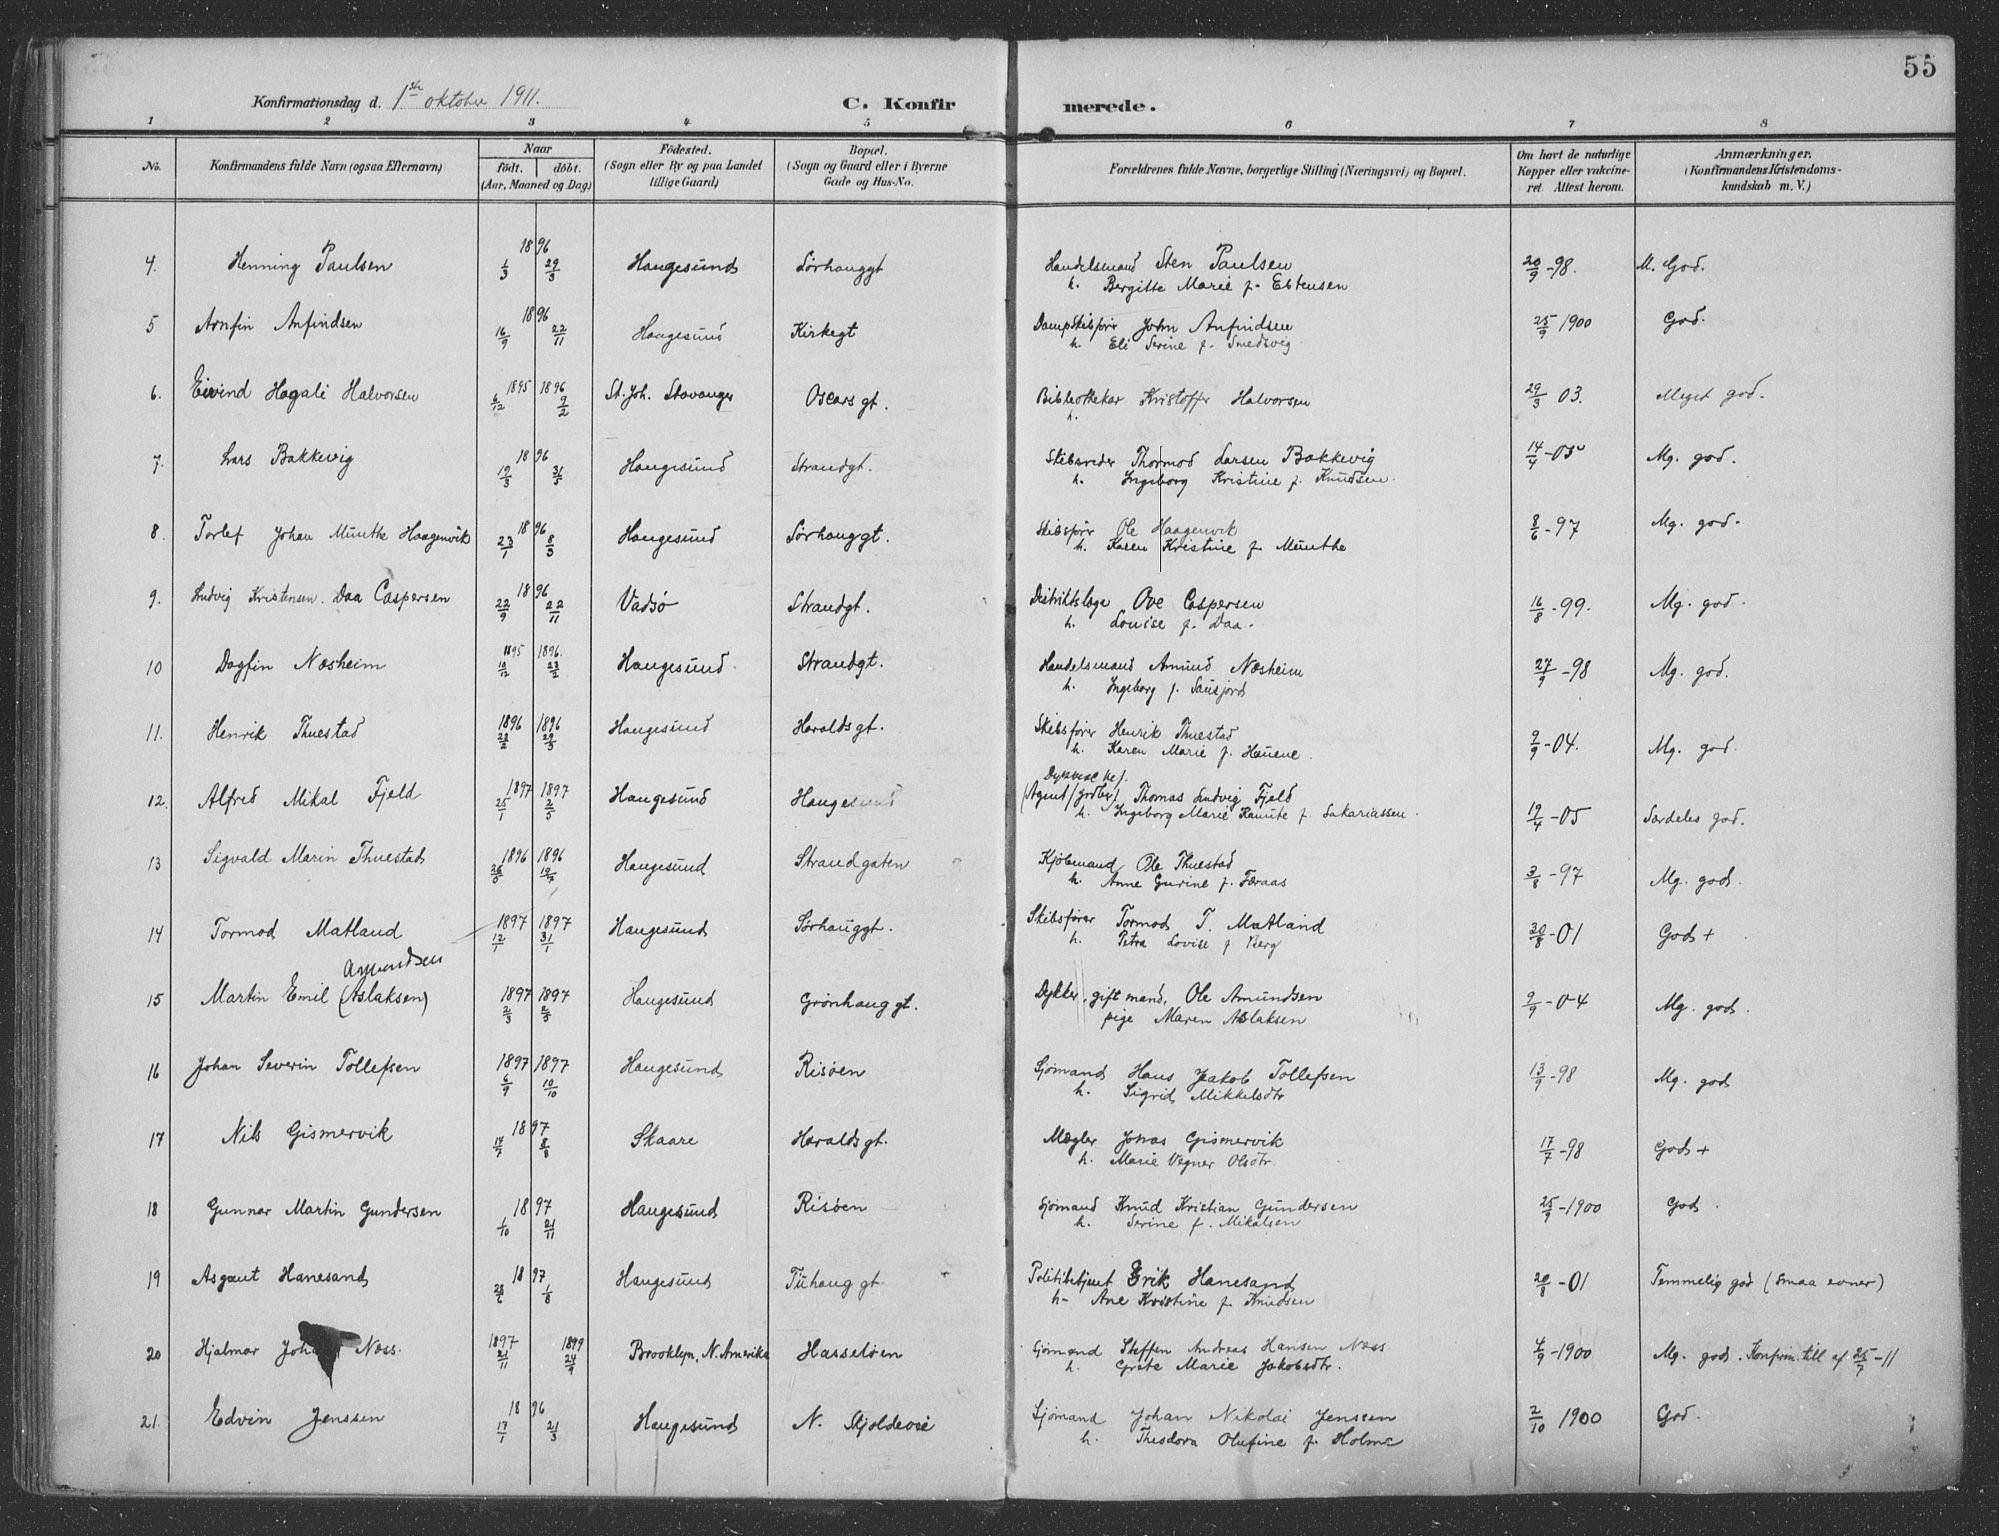 55
Konfirmationsdag d. 1ste oktober 1911.
C. Konfirmerede.
1 2 3 4 5 6 7 8
No. Konfirmandens fulde Navn (ogsaa Efternavn)
Naar
födt. döbt.
(Aar, Maaned og Dag)
Födested.
(Sogn eller By og paa Landet
tillige Gaard)
Bopæl.
(Sogn og Gaard eller i Byerne
Gade og Hus-No.
Forældrenes fulde Navne, borgerlige Stilling (Næringsvei) og Bopæl.
Om havt de naturlige
Kopper eller vakcine-
ret Attest herom.
Anmærkninger.
(Konfirmandens Kristendoms-
kundskab m. V.)
4. Henning Paulsen 1896 1/3 29/3 Haugesund Sørhauggt Handelsmand Sten Paulsen 20/9 -98. M. God.
h. Bergitte Marie f.
5 Arnfin Anfindsen 1896 16/9 22/11 Haugesund Kirkegt Dampskibsfører John Anfindsen 25/9 1900 God.
h. Eli Serine f. Smedsvig
6. Eivind Hagali Halvorsen 1895 6/12 1896 9/2 St. Joh. Stavanger Oscars gt. Bibliothekar Kristoffer Halvorsen 29/3 03. Meget god.
h.
7. Lars Bakkevig 1896 19/3 31/5 Haugesund Strandgt. Skibsreder Thormod Larsen Bakkevig 14/4 -05 Mg. god.
h. Ingeborg Kristine f. Knudsen.
8. Torlef Johan Munthe Haagenvik 1896 23/1 8/3 Haugesund Sørhauggt. Skibsfører Ole Haagenvik 8/6 -97 Mg. god.
h. Karen Kristine f. Munthe
9. Ludvig Kristensen Daa Caspersen 1896 22/9 22/11 Vadsø Strandgt. Distriktslæge Ove Caspersen 16/8 -99. Mg. god.
h. Louise f. Daa.
10 Dagfin Næsheim 1895 1896. 23/2 Haugesund. Strandgt. Handelsmand Amund Næsheim 27/9 -98 Mg. god.
h. Ingeborg f.
11. Henrik Thuestad 1896 1896 Haugesund Haralds gt. Skibsfører Henrik Thuestad 9/9 -04. Mg. god.
h. Karen Marie f.
12. Alfred Mikal Fjeld 1897 25/1 1897 2/5 Haugesund Haugesund (Agent Thomas Ludvig Fjeld 19/4 -05 Særdeles god.
h. Ingeborg Marie Kamite f. Sakariassen.
13 Sigvald Marin Thuestad 1896 26/5 1896 19/7 Haugesund Strandgaten Kjøbmand Ole Thuestad 3/8 -97 Mg. god.
h. Anne Gurine f. Føraas
14 Tormod Matland 1897 12/1 1897 31/1 Haugesund Sørhauggt. Skibsfører Tormod T. Matland 30/8 -01 God +
h. Petra Lovise f. Berg
Amundsen
15 Martin Emil (Aslaksen) 1897 2/3 1897 2/5 Haugesund Grønhaug gt. Dykker, gift mand, Ole Amundsen 9/9 -04 Mg. god.
pige Maren Aslaksen
16 Johan Severin Tollefsen 1897 6/9 1897 10/10 Haugesund Risøen Sjømand Hans Jakob Tollefsen 13/9 -98 Mg. god
h. Sigrid Mikkelsdtr
17 Nils Gismervik 1897 8/8 Skaare Haralds gt. Mægler Jonas Gismervik 17/7 -98 God +
h. Marie Vegner Olsdtr.
18 Gunnar Martin Gundersen 1897 1/10 21/11 Haugesund Risøen Sjømand Knud Kristian Gundersen 25/9 -1900 God.
h. Serine f. Mikalsen
19 Asgaut Hanesand 1897 1/8 Haugesund Tuhaug gt. Politibetjent Erik Hanesand 20/8 -01 Temmelig god (smaa evner)
h. Ane Kristine f. Knudsen
20 Hjalmar Næss. 1897 21/11 1899 24/9 Brooklyn, N. Amerika Hasseløen Sjømand Steffen Andreas Hansen Næss 4/9 -1900 Mg. god. Konfirm. till af 25/7 -11
h. Grete Marie Jakobsdtr.
21. Edvin Jenssen 1896 17/1 21/3 Haugesund N. Skjoldevei Sjømand Johan Nikolai Jenssen 2/10 1900 God.
h. Theodora Olufine f. Holme